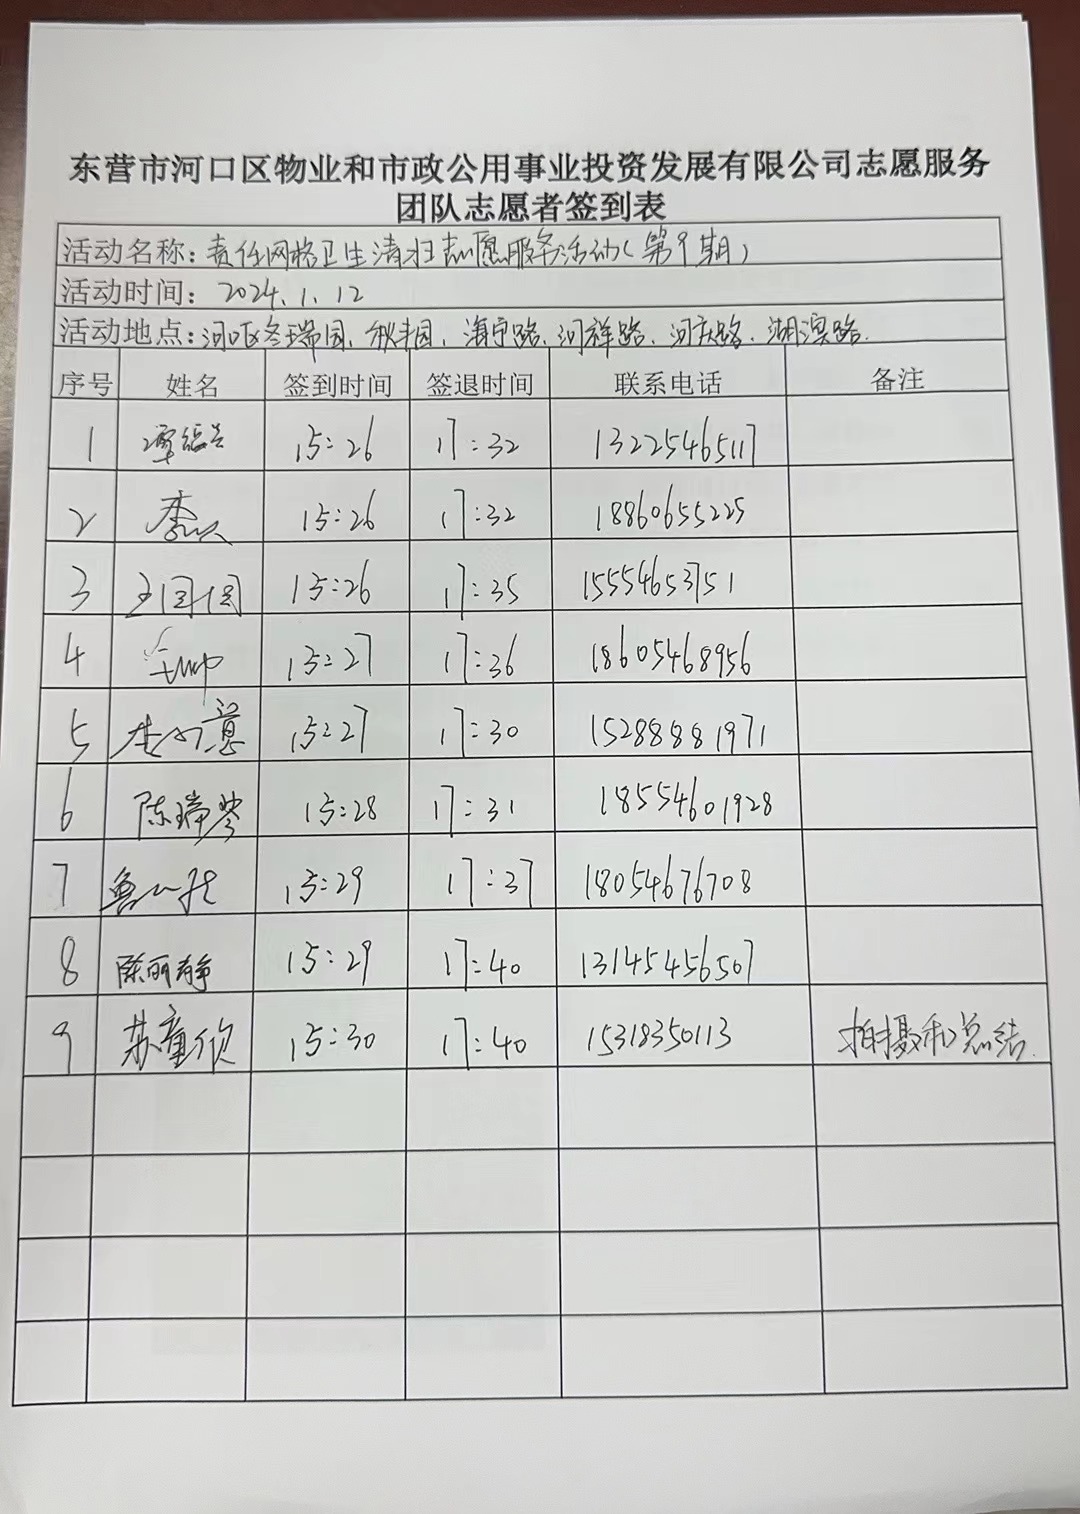 东营市河口区物业和市政公用事业投资发展有限公司志愿服务
团队志愿者签到表
活动名称：责任网格卫生清扫志愿服务活动（第9期）
活动时间：2024.1.12
活动地点：河口区冬瑞园、秋丰园、海宁路、河祥路、河庆路、湖滨路.
序号 姓名 签到时间 签退时间 联系电话 备注
1 15:26 17:32 13225465117
2 15:26 17:32 18860655225
3 王国国 15:26 17:35 15554653751
4 15:27 17:36 18605468956
5 15:27 17:30 15288881971
6 陈瑞琴 15:28 17:31 18554601928
7 15:29 17:37 18054676708
8 陈丽静 15:29 17:40 13145456507
9 苏童欣 15:30 17:40 15318350113 拍摄和总结.